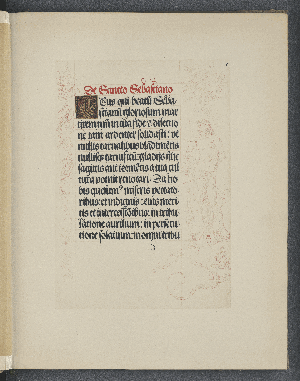 De Sancto Sebastiano
Deus qui beatū Seba
stianū gloriosum mar
tirem tuū in tua fide et dilectio
ne tam ardenter solidasti: ut
nullis carnalibus blādimētis
nullisque tyrānisticīs gladiis siue
sagittis aut tormētis a tua cul
tura potuit reuocari. Da no
bis quesumus miseris peccato
ribus et indignis: eius meri
tis et intercessiōibus: in tribu
latione auxilium: in persecu
tione solacium: in omni tribu